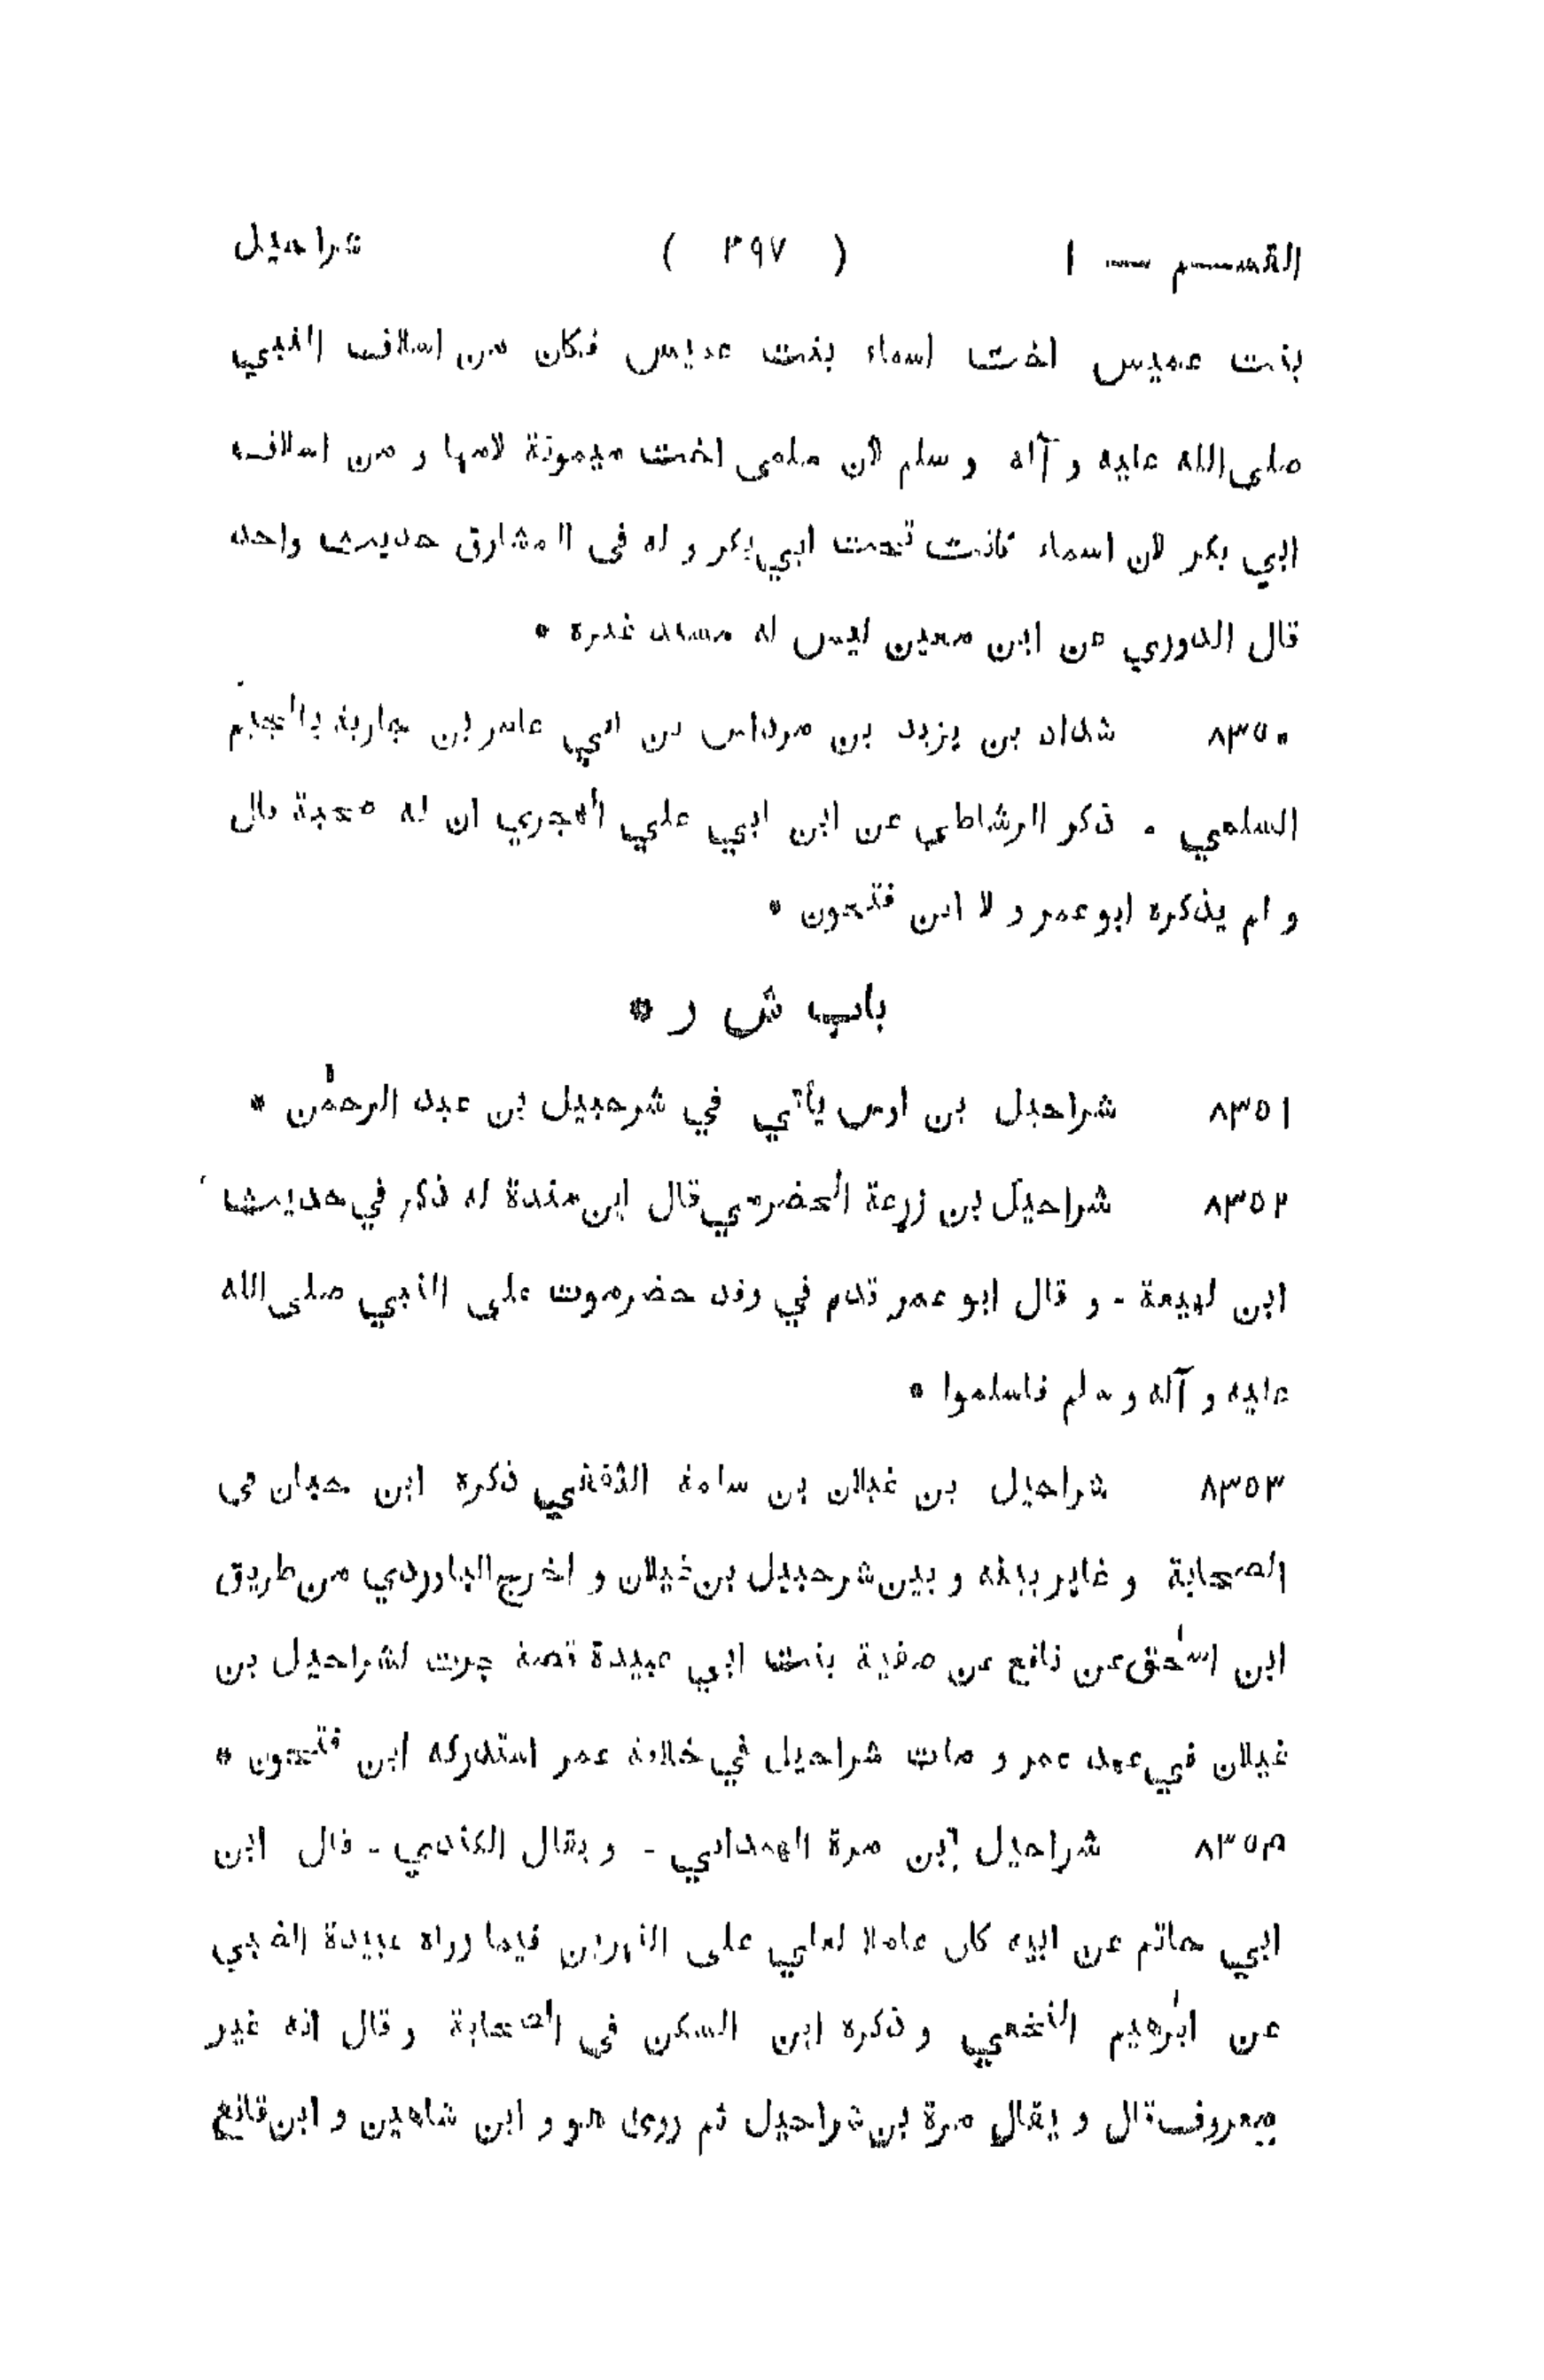 القسم — ١ ( ٣٩٧ ) شراحيل
بنت عميس اخت اسماء بنت عميس فكان من اسلاف النبي
صلى الله عليه و آله و سلم لان سلمى اخت ميمونة لامها و من اسلاف
ابي بكر لان اسماء كانت تحت ابي بكر و له فى المشارق حديث واحد
قال الدوري عن ابن معين ليس له مسند غيره *
٨٣٥٠ شداد بن يزيد بن مرداس بن ابي عامر بن جارية بالجيم
السلمي - ذكر الرشاطي عن ابن ابي علي الهجري ان له صحبة قال
و لم يذكره ابو عمر و لا ابن فتحون *
باب ش ر *
٨٣٥١ شراحيل بن اوس يأتي في شرحبيل بن عبد الرحمٰن *
٨٣٥٢ شراحيل بن زرعة الحضرمي قال ابن مندة له ذكر في حديث
ابن لهيعة - و قال ابو عمر قدم في وفد حضرموت على النبي صلى الله
عليه و آله و سلم فاسلموا *
٨٣٥٣ شراحيل بن غيلان بن سلمة الثقفي ذكره ابن حبان في
الصحابة و غاير بينه و بين شرحبيل بن غيلان و اخرج الباوردي من طريق
ابن اسحٰق عن نافع عن صفية بنت ابي عبيدة قصة جرت لشراحيل بن
غيلان في عهد عمر و مات شراحيل في خلافة عمر استدركه ابن فتحون *
٨٣٥٤ شراحيل بن مرة الهمداني - و يقال الكندي - قال ابن
ابي حاتم عن ابيه كان عاملا لعلي على النهرين فيما رواه عبيدة الضبي
عن ابرٰهيم النخعي و ذكره ابن السكن في الصحابة و قال انه غير
معروف قال و يقال مرة بن شراحيل ثم روى هو و ابن شاهين و ابن قانع